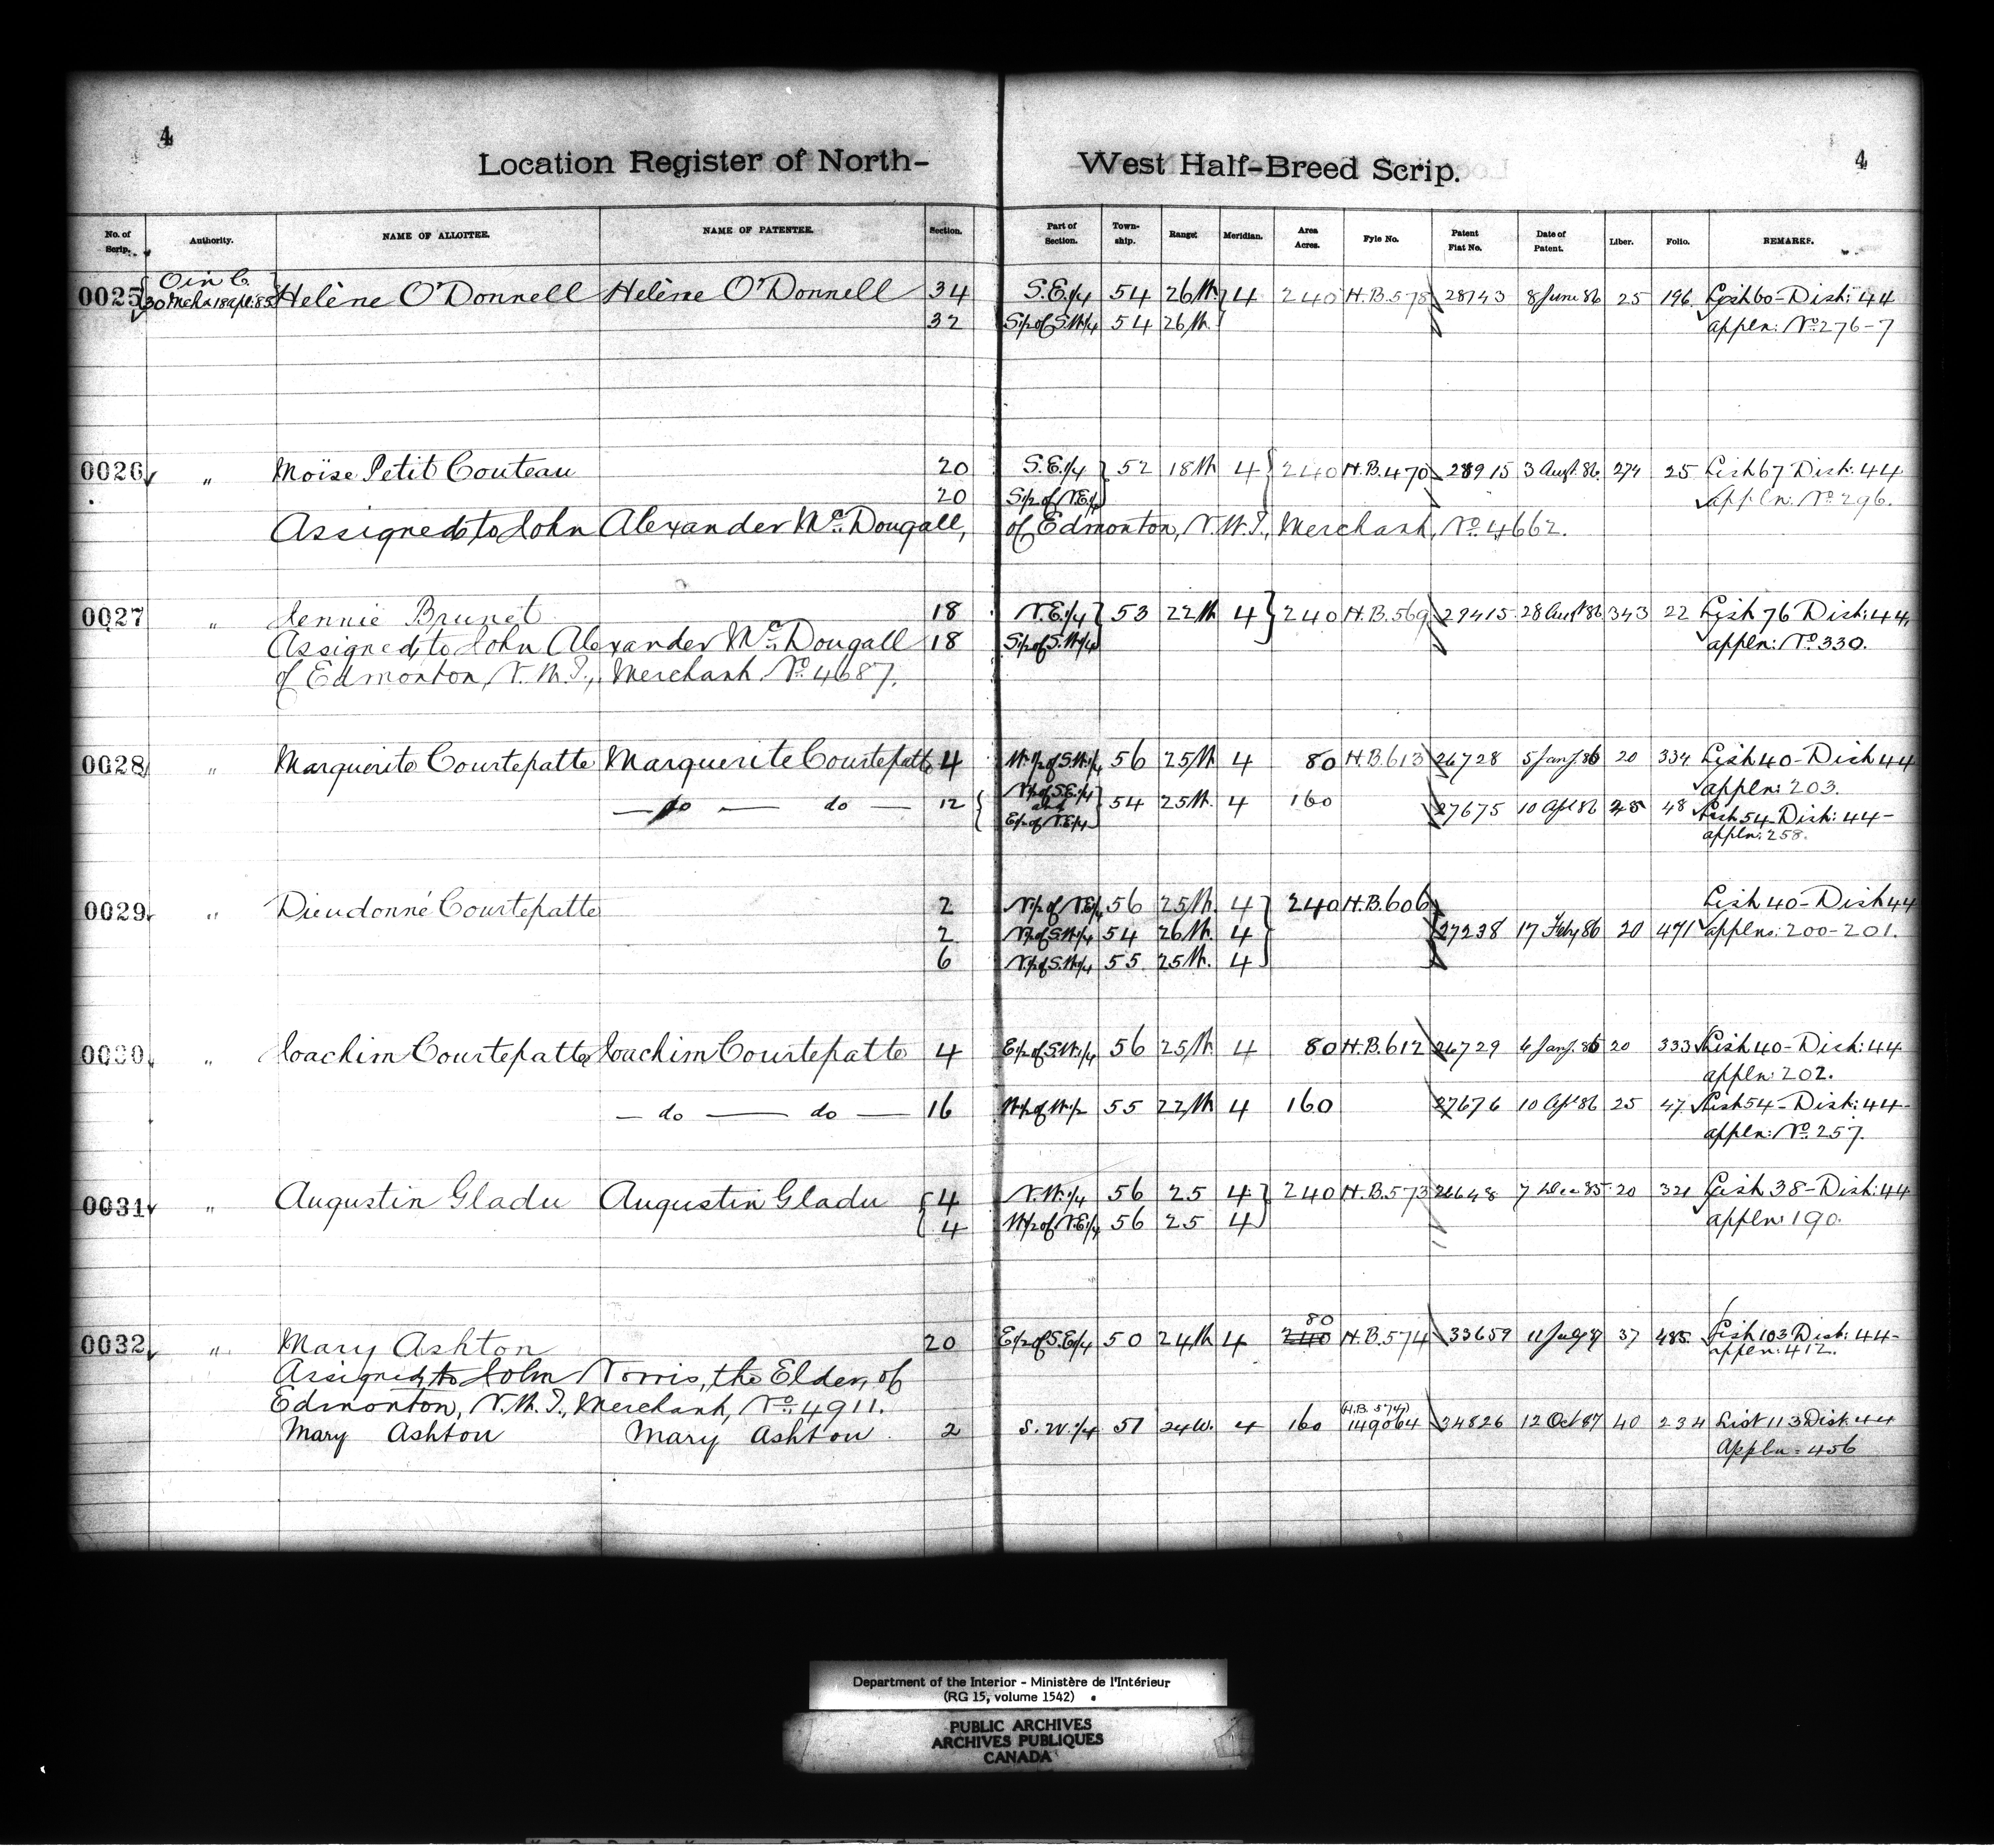 4 4
Location Register of North- West Half-Breed Scrip.
No. of Scrip. Authority. NAME OF ALLOTTEE. NAME OF PATENTEE. Section. Part of Section. Town-ship. Range. Meridian. Area Acres. Fyle No. Patent Fiat No. Date of Patent. Liber. Folio. REMARKS.
O in C.
0025 30 Mch & 18 Apl: 85 Helène O'Donnell Helène O'Donnell 34 S.E.1/4 54 26W. 4 240 H.B.578 28743 8 June 86 25 196. List 60-Dist: 44
32 S1/2 of S.W.1/4 54 26W. appln: No. 276-7
0026 " Moïse Petit Couteau 20 S.E.1/4 52 18W. 4 240 H.B.470 28915 3 Augt. 86. 274 25 List 67 Dist: 44
20 S1/2 of N.E.1/4 appln: No. 296.
Assigned to John Alexander McDougall, of Edmonton, N.W.T., Merchant, No. 4662.
0027 " Jennie Brunet 18 N.E.1/4 53 22W. 4 240 H.B.569 29415 28 Augt 86 343 22 List 76 Dist: 44,
Assigned to John Alexander McDougall 18 S1/2 of S.W.1/4 appln: No. 330.
of Edmonton, N.W.T., Merchant No. 4687.
0028 " Marguerite Courtepatte Marguerite Courtepatte 4 W.1/2 of S.W.1/4 56 25W. 4 80 H.B.613 26728 5 Jany. 86 20 334 List 40-Dist 44
appln: 203.
— do — do — 12 N1/2 of S.E.1/4 and E1/2 of N.E.1/4 54 25W. 4 160 27675 10 Apl 86 25 48 List 54-Dist: 44-
appln: 258.
0029 " Dieudonné Courtepatte 2 N1/2 of N.E.1/4 56 25W. 4 240 H.B.606 List 40-Dist 44
2 N1/2 of S.W.1/4 54 26W. 4 27238 17 Feby 86 20 471 applns: 200-201.
6 N1/2 of S.W.1/4 55 25W. 4
0030 " Joachim Courtepatte Joachim Courtepatte 4 E1/2 of S.W.1/4 56 25W. 4 80 H.B.612 26729 6 Jany. 86 20 333 List 40-Dist: 44
appln: 202.
— do — do — 16 W1/2 of W.1/2 55 22W 4 160 27676 10 Apl 86 25 47 List 54-Dist: 44-
appln: No. 257.
0031 " Augustin Gladu Augustin Gladu 4 N.W.1/4 56 25 4 240 H.B.573 26648 7 Dec 85 20 321 List 38-Dist: 44
4 W1/2 of N.E.1/4 56 25 4 appln: 190.
80
0032 " Mary Ashton 20 E1/2 of S.E.1/4 50 24W. 4 240 H.B.574 33659 11 July 87 37 485. List 103 Dist: 44-
appln: 412.
Assigned to John Norris, the Elder, of
Edmonton, N.W.T., Merchant, No. 4911.
(H.B. 574)
Mary Ashton Mary Ashton 2 S.W.1/4 51 24W. 4 160 149064 34826 12 Oct 87 40 234 List 113 Dist: 44
Appln- 456
Department of the Interior - Ministère de l'Intérieur
(RG 15, volume 1542)
PUBLIC ARCHIVES
ARCHIVES PUBLIQUES
CANADA